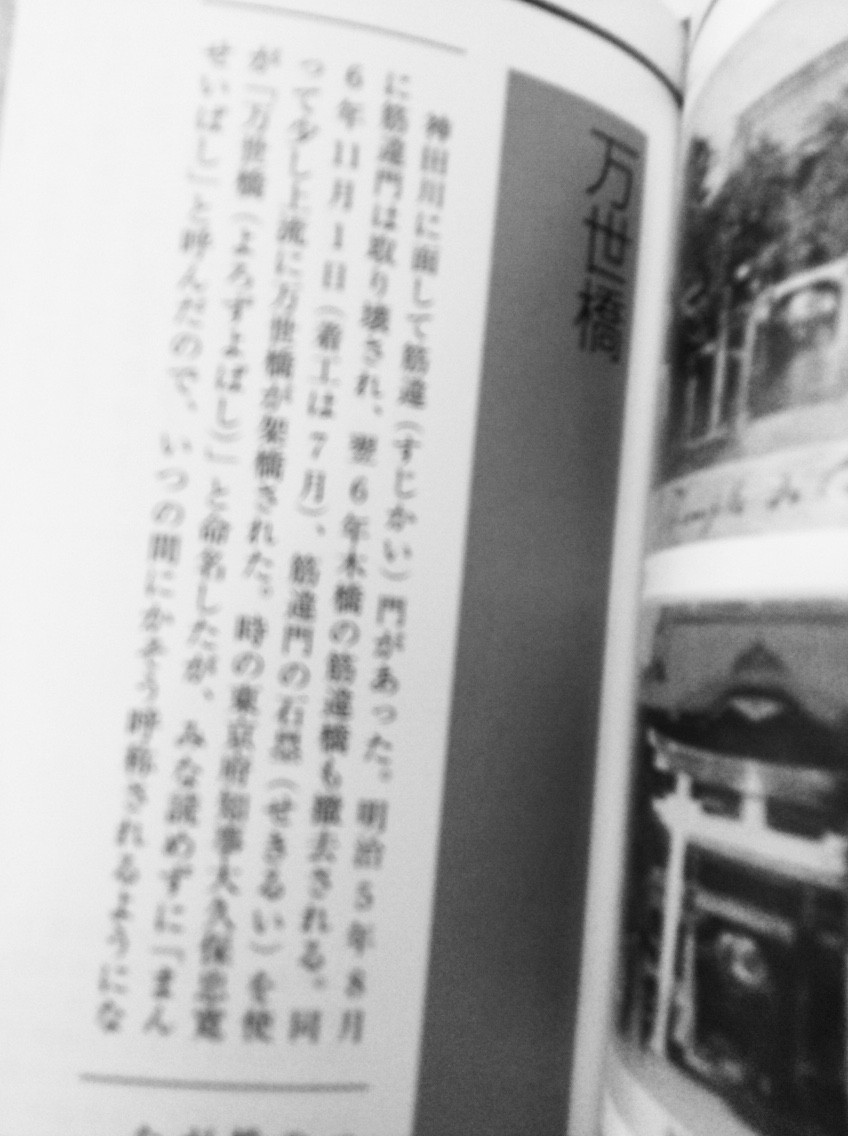 万世橋
神田川に面して筋違（すじかい）門があった。明治5年8月
に筋違門は取り壊され、翌6年木橋の筋違橋も撤去される。同
6年11月1日（着工は7月）、筋違門の石塁（せきるい）を使
って少し上流に万世橋が架橋された。時の東京府知事大久保忠寛
が「万世橋（よろずよばし）」と命名したが、みな読めずに「まん
せいばし」と呼んだので、いつの間にかそう呼称されるようにな